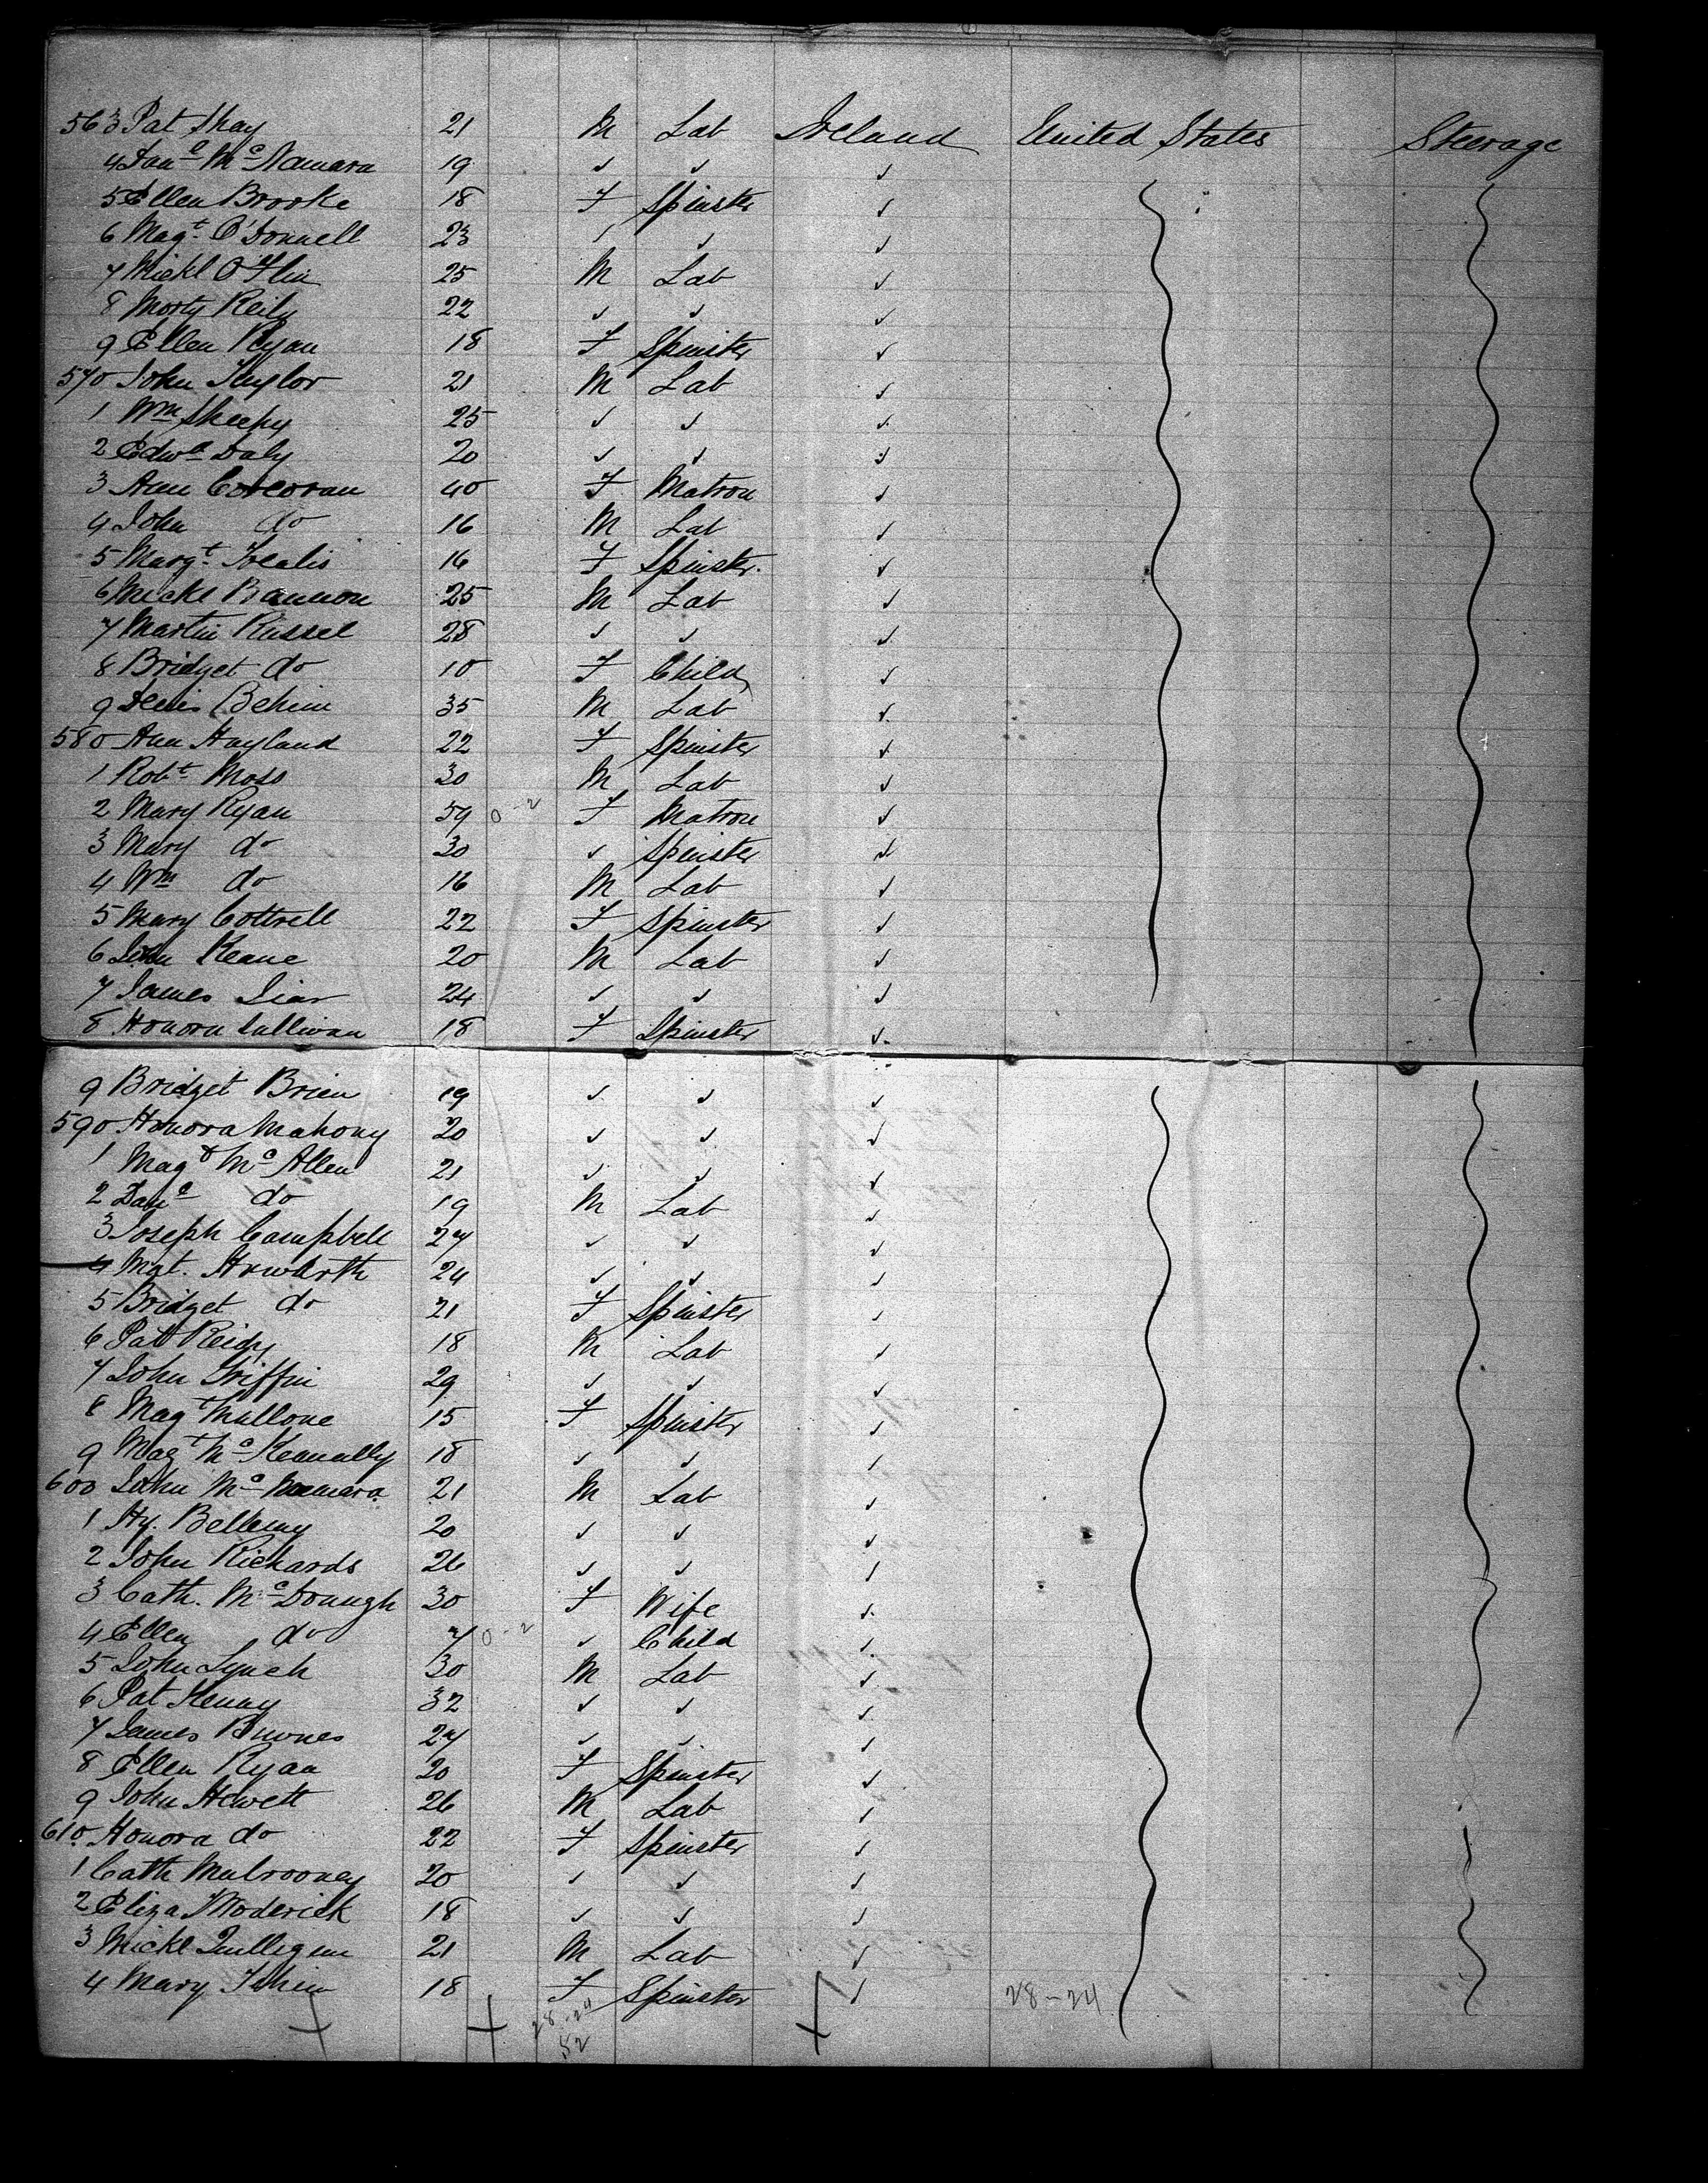 563 Pat Shay 21 M Lab Ireland United States Steerage
4 Danl McNamara 19 " " "
5 Ellen Brooke 18 F Spinster "
6 Magt O'Donnell 23 " " "
7 Mickl O'Flin 25 M Lab "
8 Morty Reily 22 " " "
9 Ellen Ryan 18 F Spinster "
570 John Taylor 21 M Lab "
1 Wm Sheehy 25 " " "
2 Edwd Daly 20 " " "
3 Ann Corcoran 40 F Matron "
4 John do 16 M Lab "
5 Margt 16 F Spinster "
6 Mickl Bannon 25 M Lab "
7 Martin Russel 28 " " "
8 Bridget do 10 F Child "
9 Denis Behim 35 M Lab "
580 Ann Hayland 22 F Spinster "
1 Robt Moss 30 M Lab "
2 Mary Ryan 59 0-2 F Matron "
3 Mary do 30 " Spinster "
4 Wm do 16 M Lab "
5 Mary Cottrell 22 F Spinster "
6 John Keane 20 M Lab "
7 James 24 " " "
8 Honora Sullivan 18 F Spinster "
9 Bridget Brien 19 " " "
590 Honora Mahony 20 " " "
1 Magt McAllen 21 " " "
2 Danl do 19 M Lab "
3 Joseph Campbell 27 " " "
4 Mat. Howarth 24 " " "
5 Bridget do 21 F Spinster "
6 Pat Reidy 18 M Lab "
7 John Griffin 29 " " "
8 Magt Mallone 15 F Spinster "
9 Magt McKennally 18 " " "
600 John McNamara 21 M Lab "
1 Hy. Bellemy 20 " " "
2 John Richards 26 " " "
3 Cath. McDonugh 30 F Wife "
4 Ellen do 7 0-2 " Child "
5 John Lynch 30 M Lab "
6 Pat Kenny 32 " " "
7 James Burnes 27 " " "
8 Ellen Ryan 20 F Spinster "
9 John Hewett 26 M Lab "
610 Honora do 22 F Spinster "
1 Cath Mulrooney 20 " " "
2 Eliza 18 " " "
3 Mickl Quilligan 21 M Lab "
4 Mary 18 F Spinster " 28-24
28-24
52